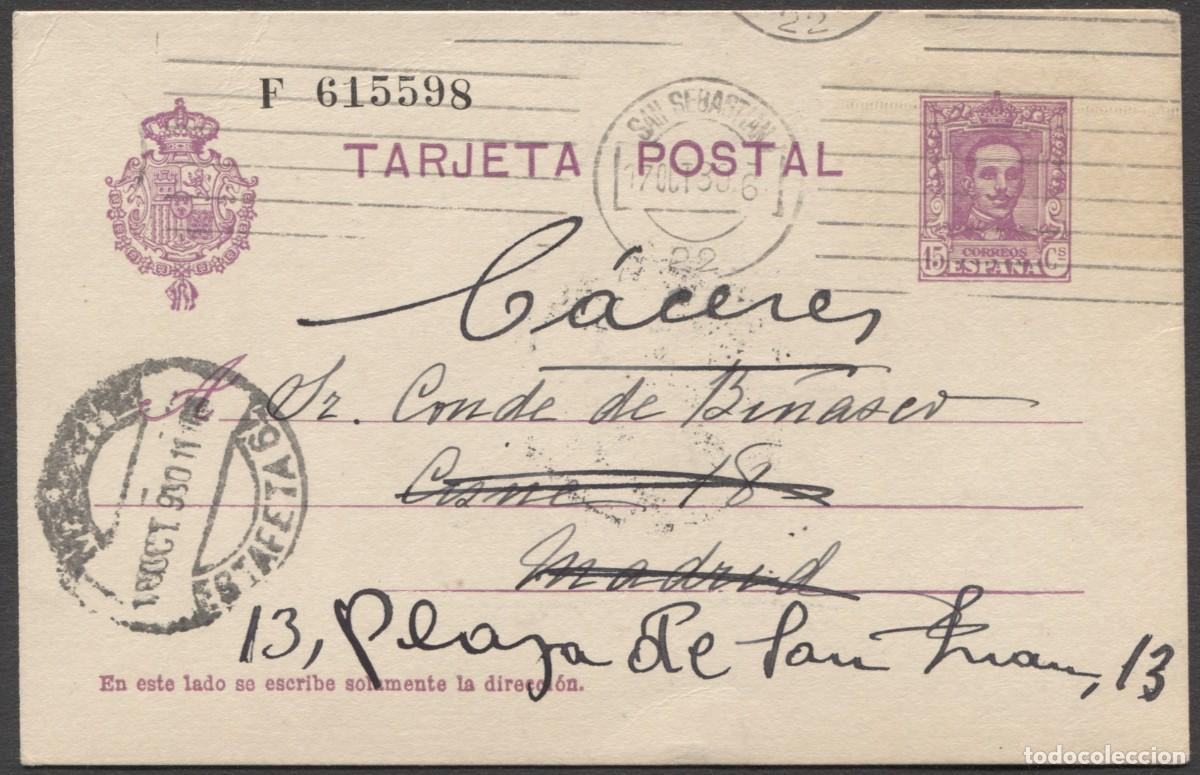 22
F 615598
SAN SEBASTIAN
TARJETA POSTAL
17 OCT 30 6
22
CORREOS
15 ESPAÑA Cs
Cáceres
A Sr. Conde de Binasco
Cisne 18
Madrid
18 OCT. 930 11
ESTAFETA 6
13, Plaza de San Juan, 13
En este lado se escribe solamente la dirección.
todocoleccion